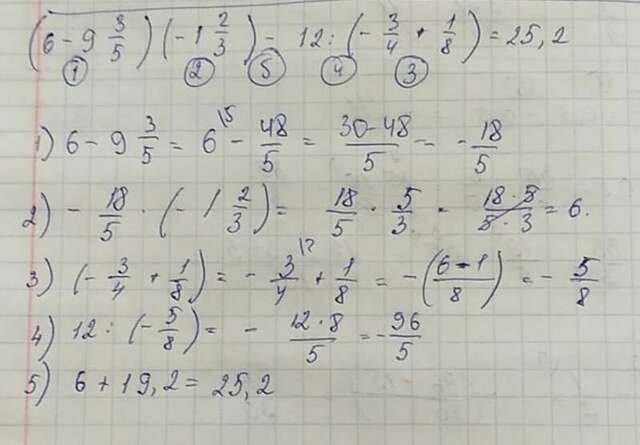 (6 - 9 3/5)(-1 2/3) - 12 : (-3/4 + 1/8) = 25,2
1 2 5 4 3
1) 6 - 9 3/5 = 6 \5 - 48/5 = 30-48/5 = -18/5
2) - 18/5 · (-1 2/3) = 18/5 · 5/3 = 18·5/5·3 = 6.
3) (-3/4 + 1/8) = - 3/4 \2 + 1/8 = -(6-1/8) = - 5/8
4) 12 : (-5/8) = - 12·8/5 = -96/5
5) 6 + 19,2 = 25,2